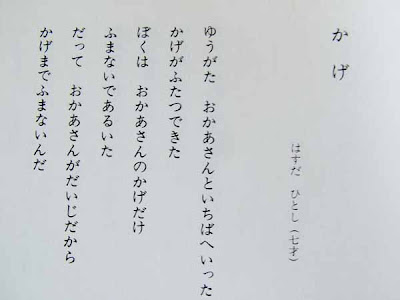 かげ
はすだ　ひとし（七才）
ゆうがた　おかあさんといちばへいった
かげがふたつできた
ぼくは　おかあさんのかげだけ
ふまないであるいた
だって　おかあさんがだいじだから
かげまでふまないんだ